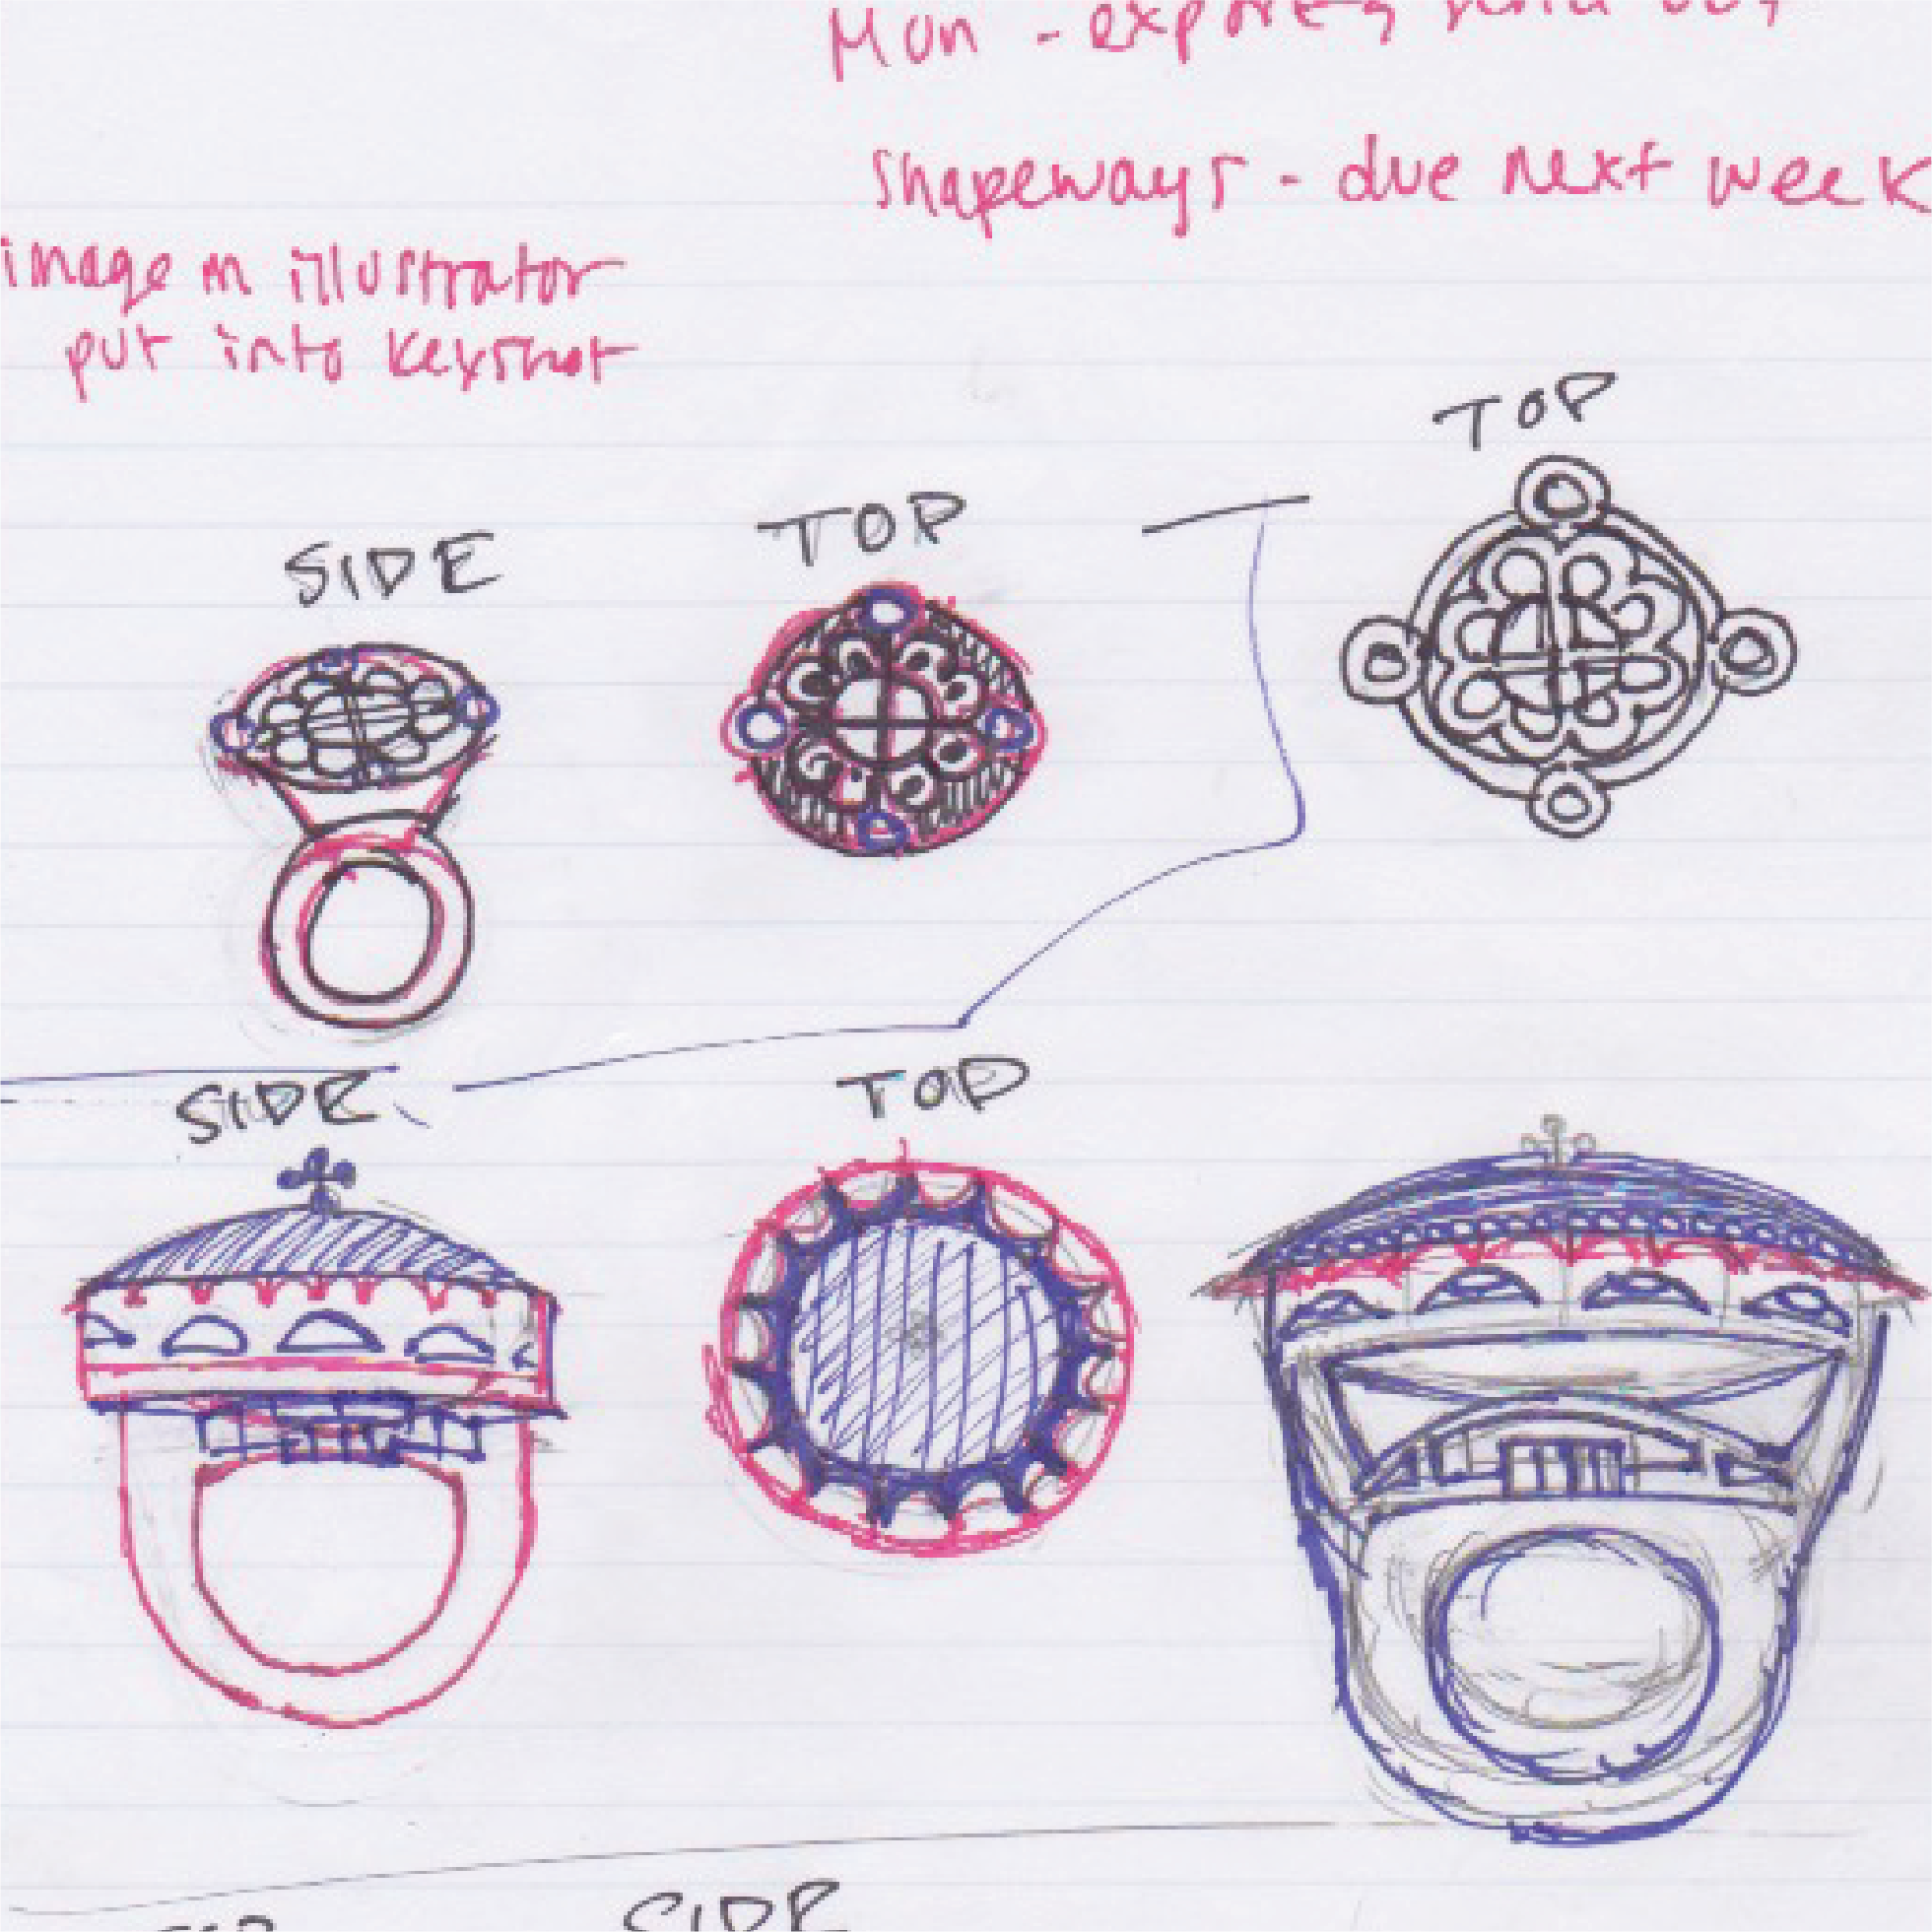 Mon -
Shapeways - due next week
image in illustrator
put into keyshot
TOP
TOP
SIDE
SIDE
TOP
SIDE